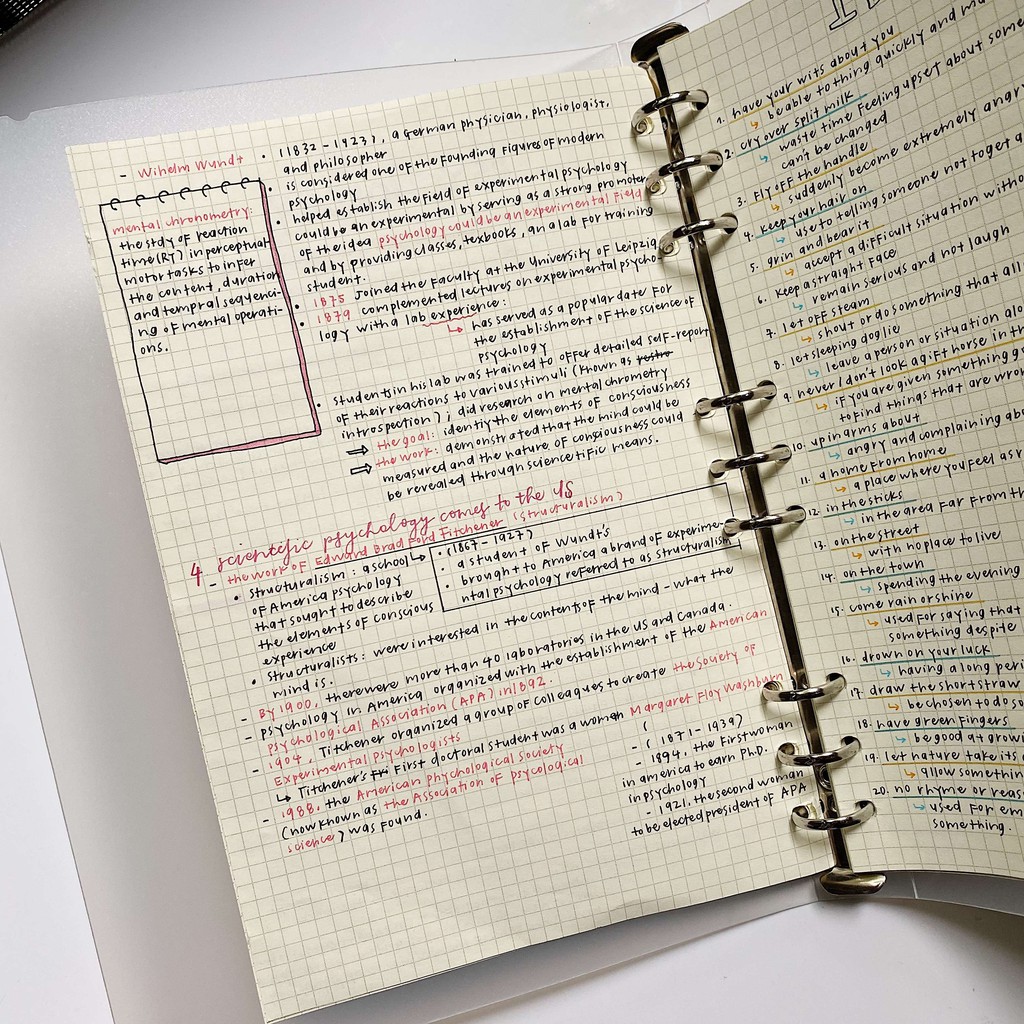 - Wilhelm Wundt
• (1832 - 1923), a German physician, physiologist,
and philosopher
• is considered one of the founding figures of modern
psychology
• helped establish the field of experimental psychology
could be an experimental by serving as a strong promoter
of the idea psychology could be an experimental field
and by providing classes, texbooks, an a lab for training
student.
• 1875 joined the faculty at the University of Leipzig
• 1879 complemented lectures on experimental psycho-
logy with a lab experience:
↳ has served as a popular date for
the establishment of the science of
psychology
• students in his lab was trained to offer detailed self-report
of their reactions to various stimuli (known as
introspection); did research on mental chronometry
⇒ the goal: identiy the elements of consciousness
⇒ the work: demonstrated that the mind could be
measured and the nature of consciousness could
be revealed through science tific means.
mental chronometry:
the stdy of reaction
time (RT) in perceptual
motor tasks to infer
the content, duration
and tempral sequenci-
ng of mental operati-
ons.
4 scientific psychology comes to the US
- the work of Edward Brad Ford Titchener (structuralism)
• structuralism: a school
of America psychology
that sought to describe
the elements of conscious
experience
→ • (1867 - 1927)
• a student of Wundt's
• brought to America a brand of experime-
ntal psychology referred to as structuralism
• structuralists: were interested in the contents of the mind - what the
mind is.
- By 1900, there were more than 40 laboratories in the US and Canada.
- psychology in America organized with the establishment of the American
psychological Association (APA) in 1892.
- 1904, Titchener organized a group of colleagues to create the Society of
Experimental psychologists
↳ Titchener's first doctoral student was a women Margaret Floy Washburn
- (1871 - 1939)
- 1894, the first woman
in america to earn Ph.D.
in psychology
- 1921, the second woman
to be elected president of APA
- 1988, the American phychological Society
(now known as the Association of psycological
science) was found.
1. have your wits about you
↳ be able to thing quickly and
2. cry over split milk
↳ waste time feeling upset about
can't be changed
3. fly off the handle
↳ suddenly become extremely angry
4. keep your hair on
↳ use to telling someone not to get
5. grin and bear it
↳ accept a difficult situation
6. keep a straight face
↳ remain serious and not laugh
7. let off steam
↳ shout or do something that
8. let sleeping dog lie
↳ leave a person or situation
9. never / don't look a gift horse in
↳ if you are given something
to find things that are
10. up in arms about
↳ angry and complaining
11. a home from home
↳ a place where you feel as
12. in the sticks
↳ in the area far from
13. on the street
↳ with no place to live
14. on the town
↳ spending the evening
15. come rain or shine
↳ used for saying that
something despite
16. drown on your luck
↳ having a long
17. draw the short straw
↳ be chosen to do
18. have green fingers
↳ be good at
19. let nature take its
↳ allow
20. no rhyme or
↳ used for
something.